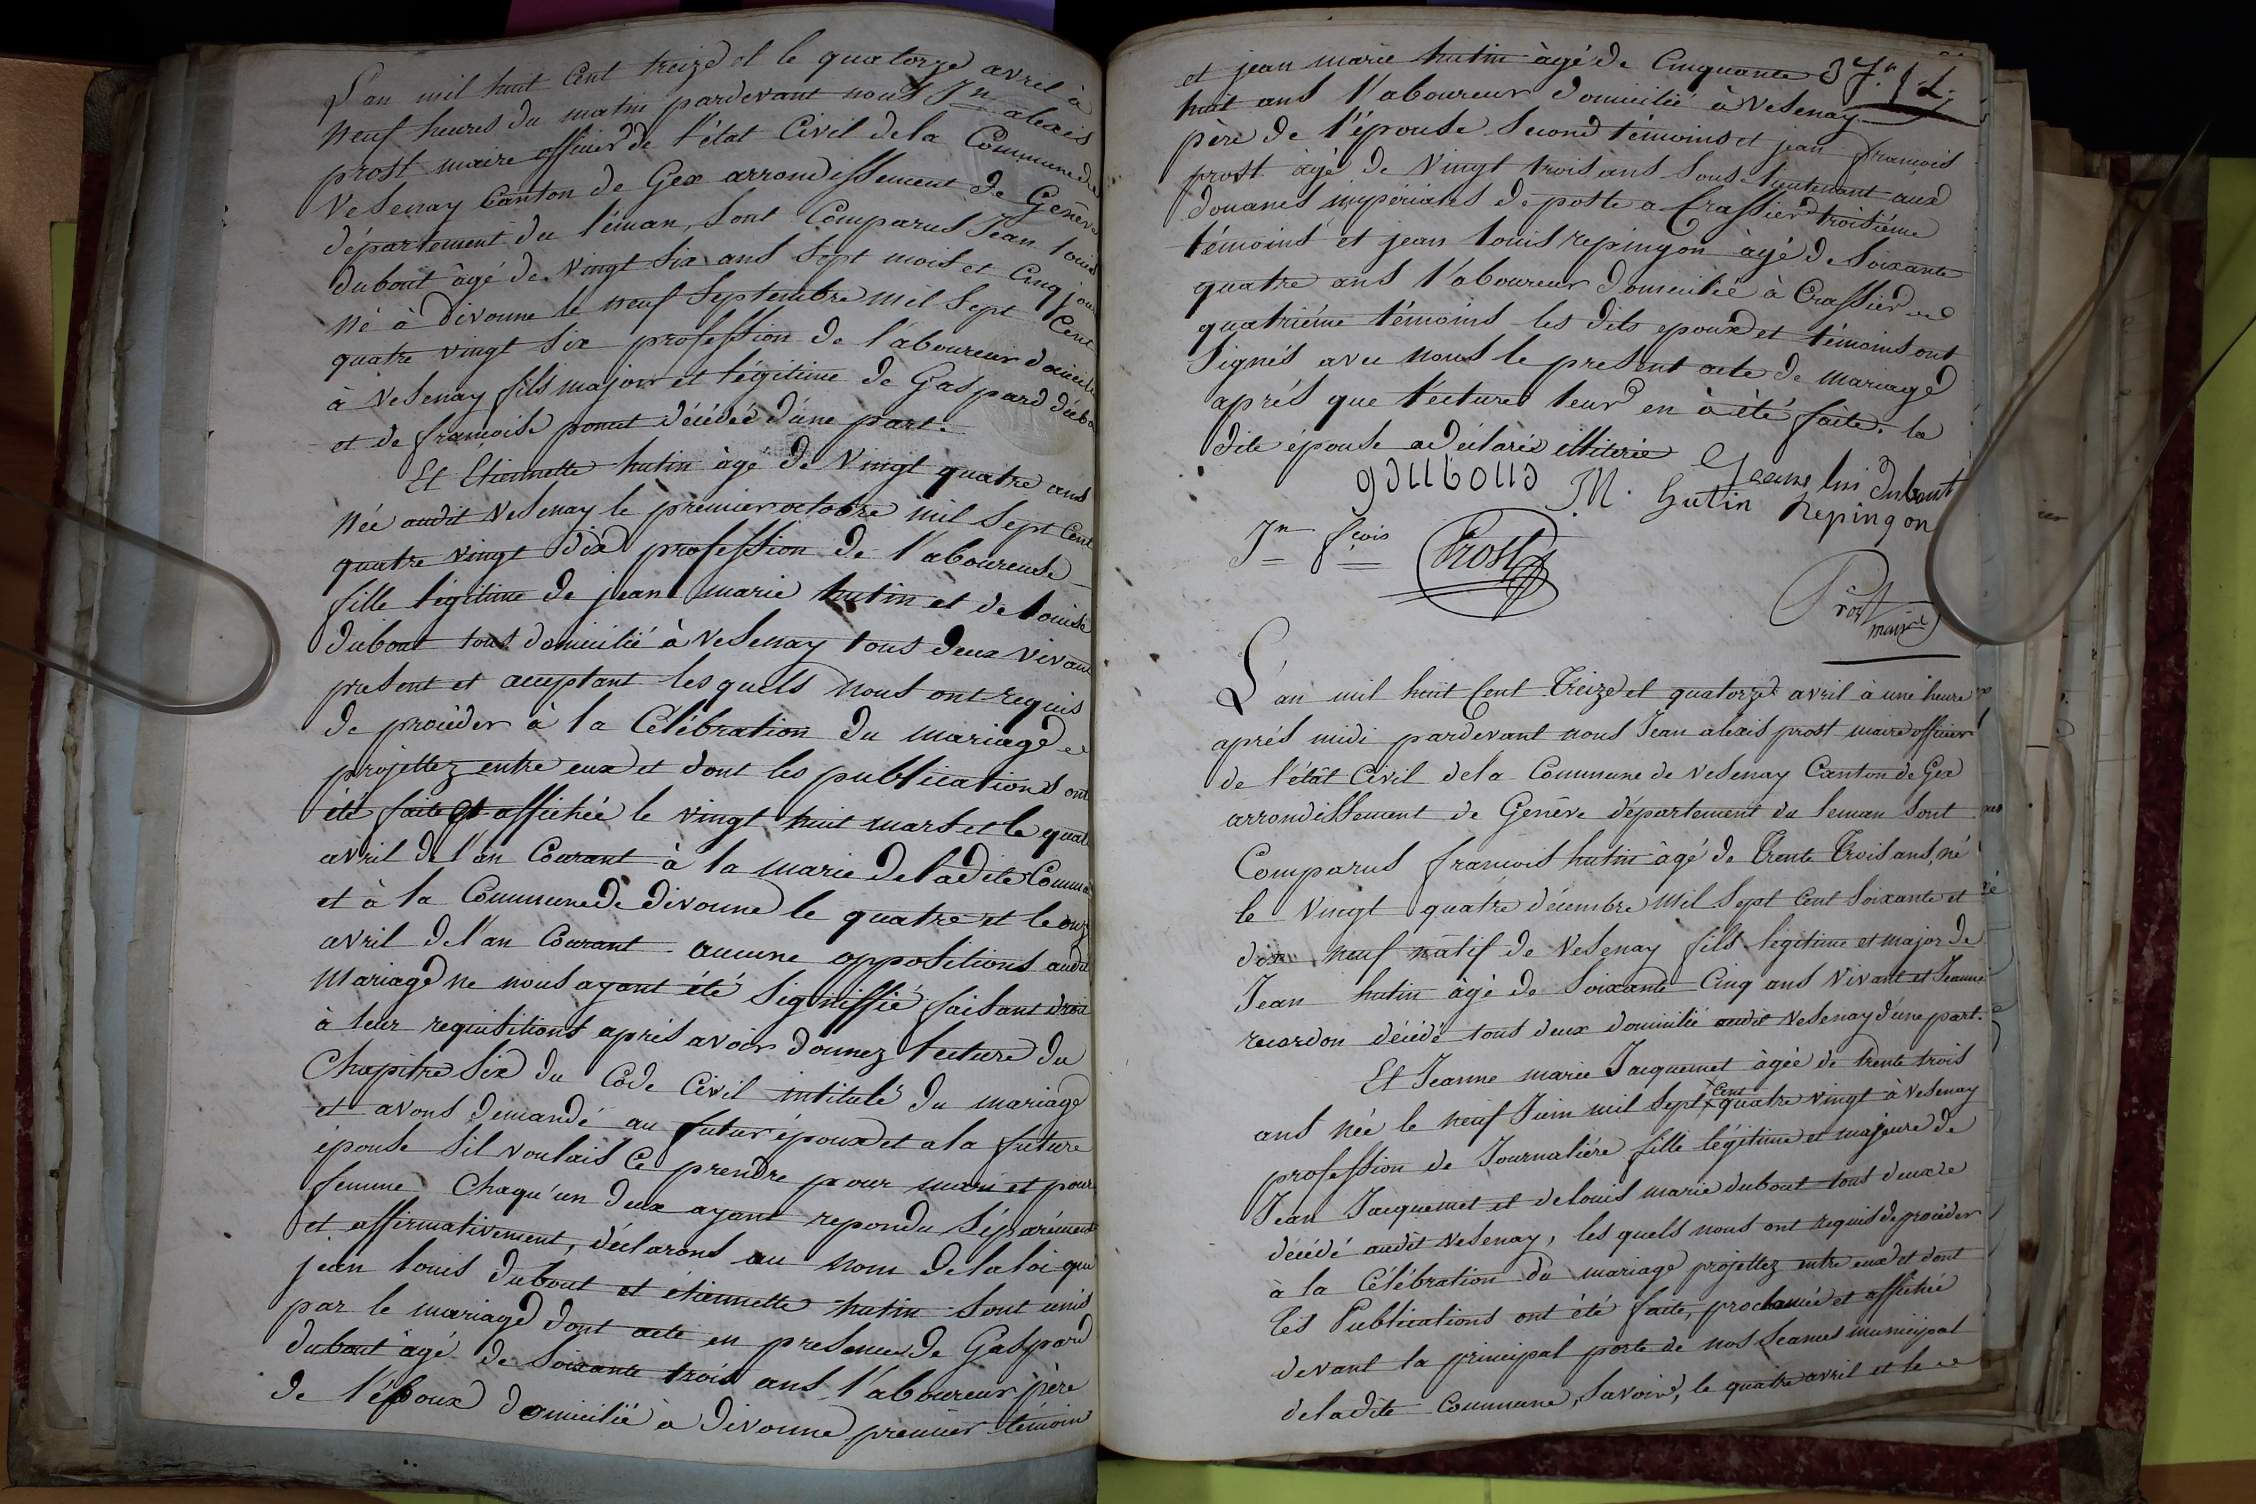 L'an mil huit Cent treize et le quatorze avril à
neuf heures du matin pardevant nous Jn alexis
prost maire officier de l'état Civil dela Commune de
Vesenay Canton de Gex arrondissement de Genève
département du léman, sont Comparus Jean louis
dubout âgé de Vingt six ans sept mois et Cinq jours
né à divonne le neuf Septembre mil Sept Cent
quatre vingt six profession de l'aboureur domicilié
à Vesenay fils major et légitime de Gaspard dubout
et de françoise décédée d'une part.
Et Etiennette hutin àgé de Vingt quatre ans
née audit Vesenay le premier octobre mil Sept Cent
quatre vingt dix profession de l'aboureuse
fille légitime de jean marie hutin et de louise
dubout tous domicilié à Vesenay tous deux vivant
present et acceptant lesquels nous ont requis
de procéder à la Célébration du mariage
projettez entre eux et dont les publications ont
été faite et affichée le vingt huit mars et le quatre
avril de l'an Courant à la marie de ladite Commune
et à la Commune de divonne le quatre et le onze
avril de l'an Courant aucune oppositions audit
mariage ne nous ayant été signiffié faisant droit
à leur requisitions aprés avoir donnez lecture du
Chapitre Six du Code Civil intitulé du mariage
et avons demandé au futur époux et a la future
épouse sil voulais Ce prendre pour mari et pour
femme Chaqu'un deux ayant repondu séparément
et affirmativement, déclarons au nom de la loi que
jean louis dubout et étiennette hutin sont unis
par le mariage dont acte en presence de Gaspard
dubout âgé de Soixante trois ans l'aboureur père
de l'époux domicilié à divonne premier témoin
et jean marie hutin àgé de Cinquante 37.
huit ans l'aboureur domicilié à Vesenay
père de l'épouse second témoins et jean francois
prost âgé de Vingt trois ans sous lieutenant aux
douanes impériales de poste a Crassier troisiéme
témoins et jean louis repingon àgé de Soixante
quatre ans l'aboureur domicilié à Crassier
quatriéme témoins les dits epoux et témoins ont
signés avec nous le present acte de mariage
aprés que lecture leur en à été faite. la
dite épouse a déclarée illiterée
Jeans lui dubout
M. hutin Repingon
Jn fçois Prost
Prost maire
L'an mil huit Cent Treize et quatorze avril à une heure
aprés midi pardevant nous Jean alexis prost maire officier
de l'état Civil dela Commune de Vesenay Canton de Gex
arrondissement de Genève département du leman sont
Comparus francois hutin àgé de Trente Trois ans, né
le Vingt quatre décembre mil Sept Cent Soixante et
dix neuf natif de Vesenay fils légitime et major de
Jean hutin àgé de Soixante Cinq ans Vivant et Jeanne
recordon décédé tous deux domicilié audit Vesenay d'une part.
Et Jeanne marie Jacquemet àgée de trente trois
ans née le neuf Juin mil Sept Cent quatre vingt à Vesenay
profession de Journaliére fille légitime et majeure de
Jean Jacquemet et de louis marie dubout tous deux
décédé audit Vesenay, les quels nous ont requis de procéder
à la Célébration du mariage projettez entre eux et dont
les Publications ont été faite, proclamée et affichée
devant la principal porte de nos seances municipal
de ladite Commune, savoir, le quatre avril et le